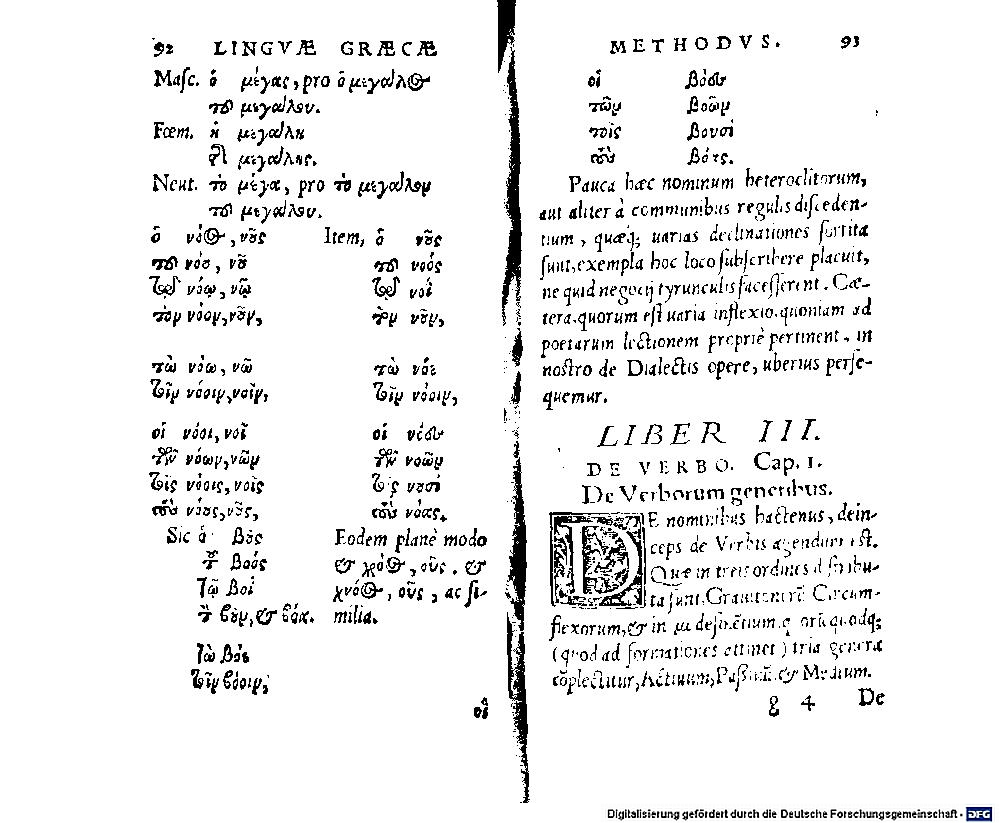 92 LINGVÆ GRÆCÆ
Masc. ὁ μέγας, pro ὁ μεγάλος
τοῦ μεγάλου.
Fœm. ἡ μεγάλη
τῆς μεγάλης.
Neut. τὸ μέγα, pro τὸ μεγάλον
τοῦ μεγάλου.
ὁ νόος, νοῦς Item, ὁ νοῦς
τοῦ νόου, νοῦ τοῦ νοός
τῷ νόῳ, νῷ τῷ νοΐ
τὸν νόον, νοῦν, τὸν νοῦν,
τὼ νόω, νῶ τὼ νόε
τοῖν νόοιν, νοῖν, τοῖν νόοιν,
οἱ νόοι, νοῖ οἱ νόες
τῶν νόων, νῶν τῶν νοῶν
τοῖς νόοις, νοῖς τοῖς νουσί
τοὺς νόους, νοῦς, τοὺς νόας.
Sic ὁ βοῦς Eodem planè modo
τοῦ βοός & χρόος, οῦς. &
τῷ βοΐ χνόος, οῦς, ac si-
τὸν βοῦν, & βόα. milia.
τὼ βόε
τοῖν βόοιν,
οἱ
METHODVS. 93
οἱ βόες
τῶν βοῶν
τοῖς βουσί
τοὺς βόας.
Pauca hæc nominum heteroclitorum,
aut aliter à communibus regulis disceden-
tium, quæq; uarias declinationes sortita
sunt, exempla hoc loco subscribere placuit,
ne quid negocij tyrunculis facesserent. Cæ-
tera, quorum est uaria inflexio, quoniam ad
poetarum lectionem propriè pertinent, in
nostro de Dialectis opere, uberius perse-
quemur.
LIBER III.
DE VERBO. Cap. 1.
De Verborum generibus.
DE nominibus hactenus, dein-
ceps de Verbis agendum est.
Quæ in treis ordines distribu-
ta sunt, Grauitonorū Circum-
flexorum, & in μι desinētium. quodq;
(quod ad formationes attinet) tria genera
cōplectitur, Actiuum, Passiuū, & Medium.
g 4 De
Digitalisierung gefördert durch die Deutsche Forschungsgemeinschaft - DFG